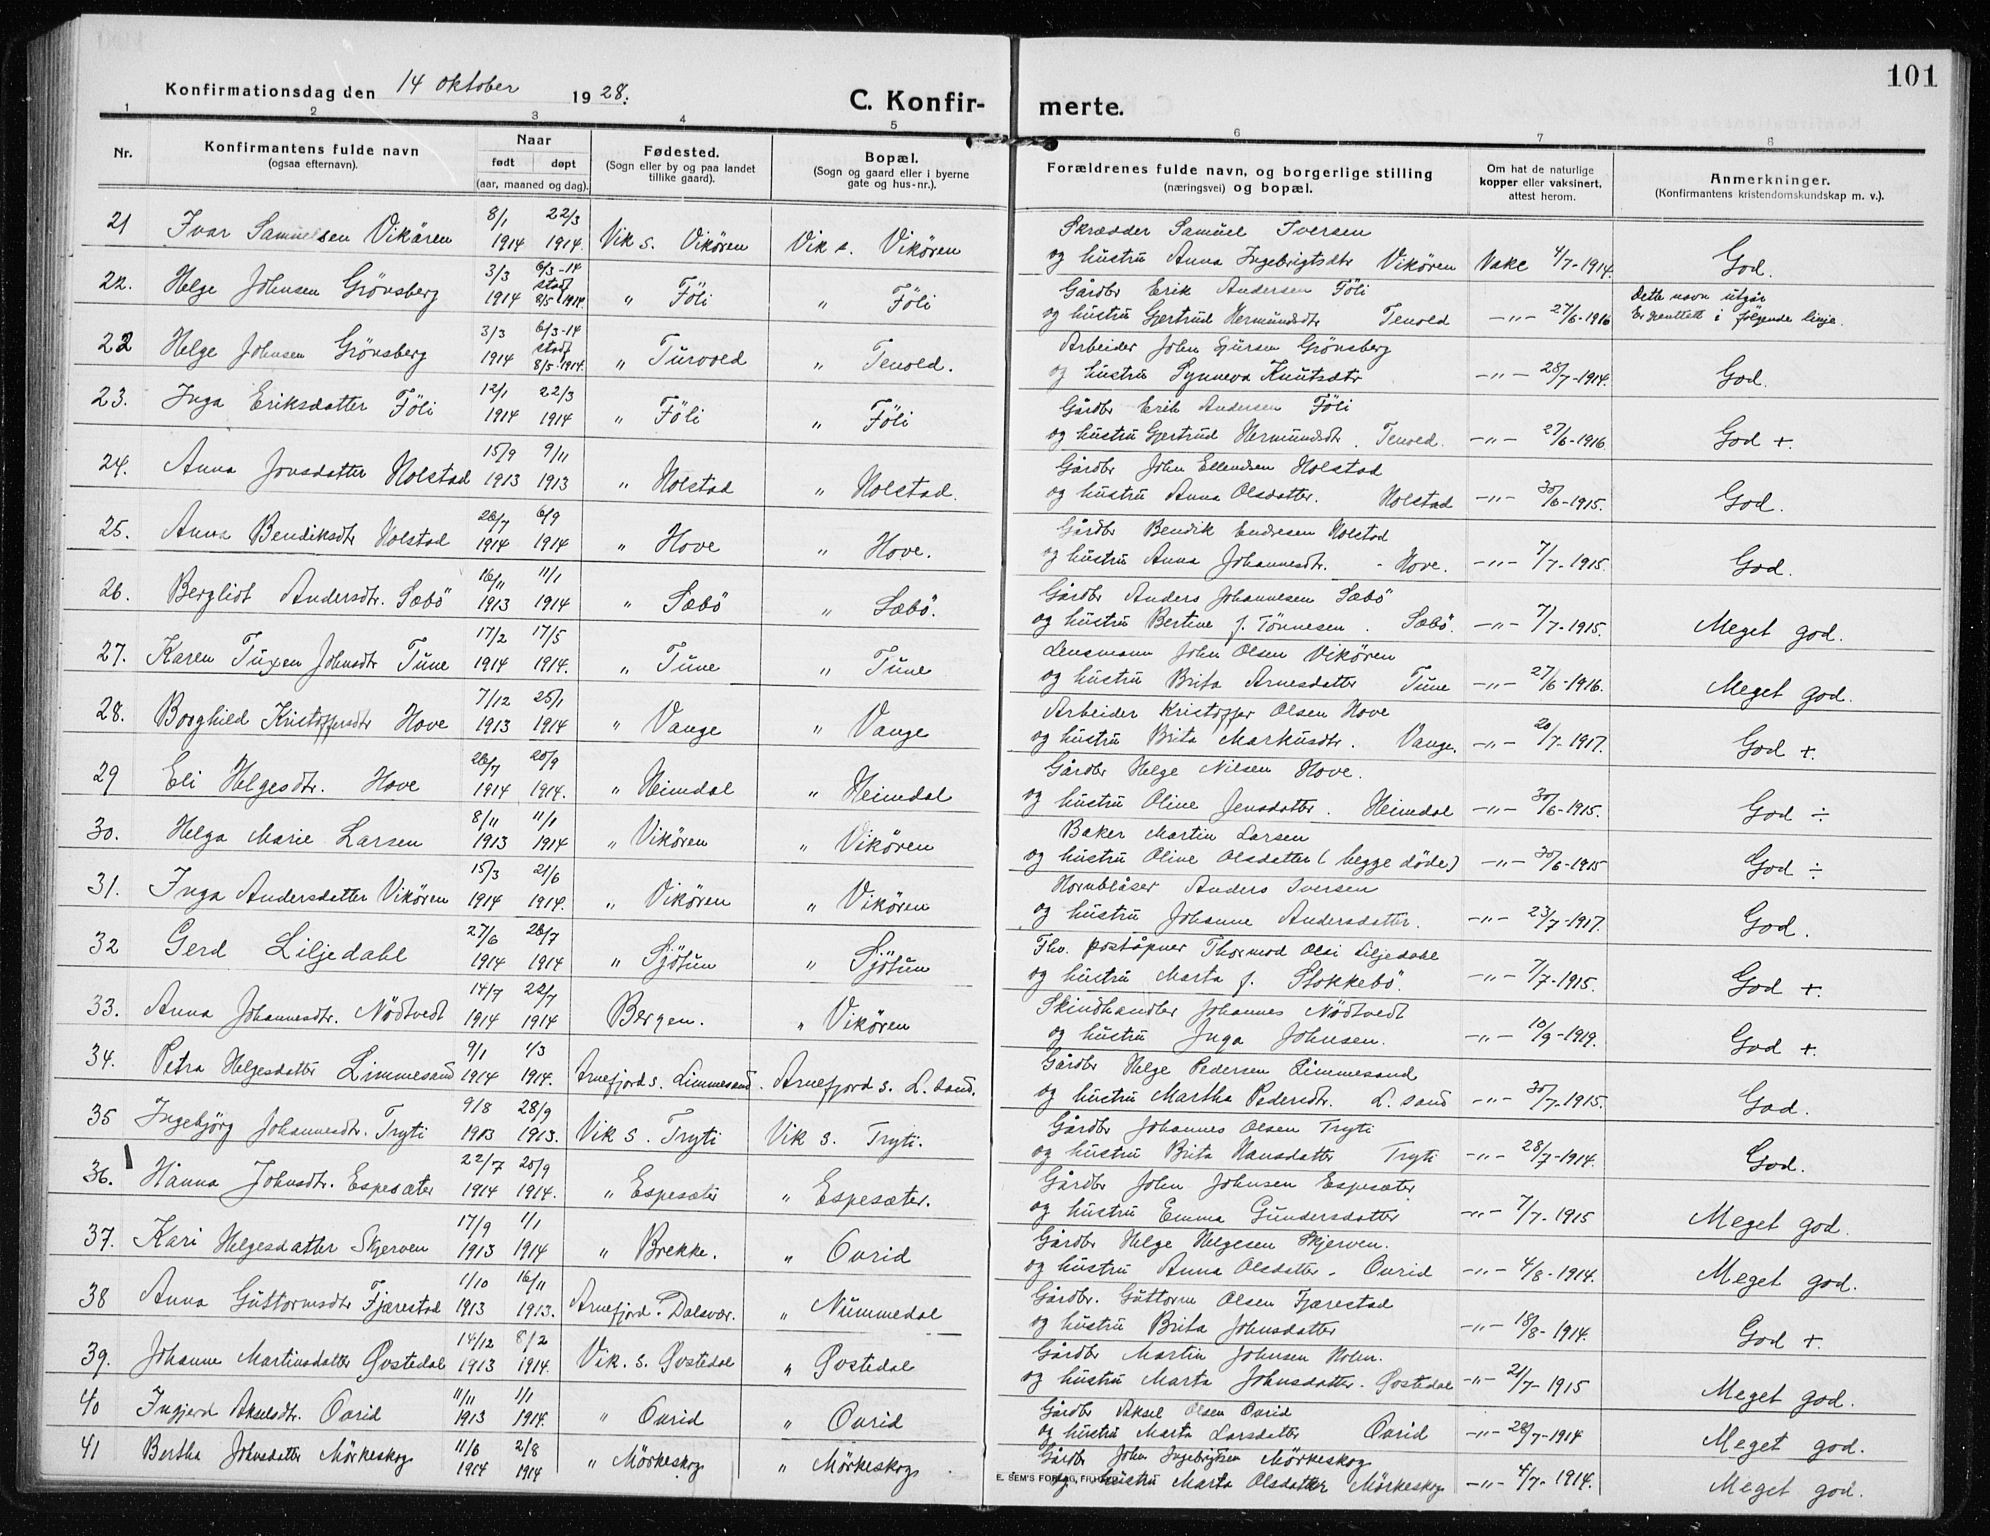 101
Konfirmationsdag den 14 oktober 1928.
C. Konfirmerte.
1 2 3 4 5 6 7 8
Nr. Konfirmantens fulde navn (ogsaa efternavn). Naar født døpt (aar, maaned og dag). Fødested. (Sogn eller by og paa landet tillike gaard). Bopæl. (Sogn og gaard eller i byerne gate og hus-nr.). Forældrenes fulde navn, og borgerlige stilling (næringsvei) og bopæl. Om hat de naturlige kopper eller vaksinert, attest herom. Anmerkninger. (Konfirmantens kristendomskundskap m. v.).
21 Ivar Samuelsen Vikören 8/1 1914 22/3 1914. Vik s. Vikören Vik s. Vikören Skrædder Samuel Iversen og hustru Anna Ingebrigtsdtr Vikören Vake 4/7-1914. God.
22. Helge Johnsen Grönsberg 3/3 1914 6/3-14 stadf 8/5 1914. " Föli " Föli Gårdbr Erik Andersen Föli og hustru Gjertrud Hermundsdtr Tenold -"- 27/6-1916 Dette navn utgår Er henttett i følgende linje.
22 Helge Johnsen Grönsberg 3/3 1914 6/3-14 stadf 8/5-1914. " Turvold " Tenold. Arbeider John Sjursen Grönsberg og hustru Synneva Knutsdtr -"- 28/7-1914. God.
23. Inga Eriksdatter Föli 12/1 1914 22/3 1914 " Föli " Föli Gårdbr Erik Andersen Föli og hustru Gjertrud Hermundsdtr. Tenold. -"- 27/6-1916. God +
24. Anna Jonsdatter Holstad 15/9 1913 9/11 1913 " Holstad " Holstad. Gårdbr John Ellendsen Holstad og hustru Anna Olsdatter. Holstad -"- 30/6-1915. God.
25. Anna Bendiksdtr Holstad 26/7 1914 6/9 1914 " Hove " Hove. Gårdbr Bendik Endresen Holstad og hustru Anna Johannesdtr. - Hove. -"- 7/7-1915. God.
26. Bergliot Andersdtr. Sæbö 16/11 1913 11/1 1914 " Sæbö " Sæbö. Gårdbr Anders Johannesen Sæbö og hustru Bertine f. Tönnesen. Sæbö. -"- 7/7-1915. Meget god.
27. Karen Tuxen Johnsdtr Tune 17/2 1914 17/5 1914. " Tune " Tune Lensmann John Olsen Vikören og hustru Brita Arnesdatter Tune -"- 27/6-1916. Meget god.
28. Borghild Kristoffersdtr Hove 7/12 1913 25/1 1914 " Vange " Vange Arbeider Kristoffer Olsen Hove og hustru Brita Markusdtr. Vange. -"- 20/7-1917. God +.
29 Eli Helgesdtr. Hove 26/7 1914 20/9 1914. " Heimdal " Heimdal Gårdbr Helge Nilsen Hove. og hustru Oline Jensdatter. Heimdal -"- 30/6-1915. God ÷
30. Helga Marie Larsen 8/11 1913 11/1 1914 " Vikören " Vikören Baker Martin Larsen og hustru Oline Olsdatter (begge döde) -"- 30/6-1915 God ÷
31. Inga Andersdatter Vikören 15/3 1914 21/6 1914. " Vikören " Vikören Hornblåser Anders Iversen og hustru Johanne Andersdatter. -"- 23/7-1917. God.
32 Gerd Liljedahl 27/6 1914 26/7 1914 " Sjötun " Sjötun Fhv. poståpner Thormod Olai Liljedahl og hustru Marta f. Stokkebö. -"- 7/7-1915. God +.
33. Anna Johannesdtr. Nödtvedt 14/7 1914 22/7 1914 Bergen. " Vikören Skindhandler Johannes Nödtvedt og hustru Inga Johnsen. -"- 10/9-1919. God +.
34. Petra Helgesdatter Limmesand 9/1 1914 1/3 1914. Arnefjord s. Limmesand. Arnefjord s. L. sand. Gårdbr Helge Pedersen Limmesand og hustru Martha Pedersdtr. L. sand -"- 30/7-1915. God.
35 Ingebjörg Johannesdtr. Tryti 9/8 1913 28/9 1913. Vik s. Tryti Vik s. Tryti. Gårdbr Johannes Olsen Tryti og hustru Brita Hansdatter Tryti -"- 28/7-1914. God.
36. Hanna Johnsdtr. Espesæter 22/7 1914 20/9 1914. " Espesæter " Espesæter. Gårdbr John Johnsen Espesæter og hustru Emma Gundersdatter -"- 7/7-1915 Meget god.
37. Kari Helgesdatter Skjerven 17/9 1913 1/1 1914 " Brekke. " Ovrid Gårdbr Helge Helgesen Skjerven. og hustru Anna Olsdatter. Ovrid -"- 4/8-1914. Meget god.
38 Anna Guttormsdtr Fjærestad 1/10 1913 16/11 1913. Arnefjord. Dalsvær. " Nummedal Gårdbr. Guttorm Olsen Fjærestad og hustru Brita Johnsdatter -"- 18/8-1914. God +
39. Johanne Martinsdatter Östedal 14/12 1913 8/2 1914. Vik. s. Östedal " Östedal Gårdbr Martin Johnsen Holm. og hustru Marta Johnsdatter. Östedal -"- 21/7-1915 Meget god.
40 Ingjerd Akselsdtr. Ovrid 11/11 1913 1/1 1914. " Ovrid " Ovrid Gårdbr Aksel Olsen Ovrid og hustru Marta Larsdatter Ovrid -"- 28/7-1914 Meget god.
41 Bertha Johnsdatter Mörkeskog 11/6 1914 2/8 1914 " Mörkeskog " Mörkeskog Gårdbr John Ingebrigtsen Mörkeskog og hustru Marta Olsdatter Mörkeskog -"- 4/7-1914. Meget god.
E. SEM'S FORLAG,